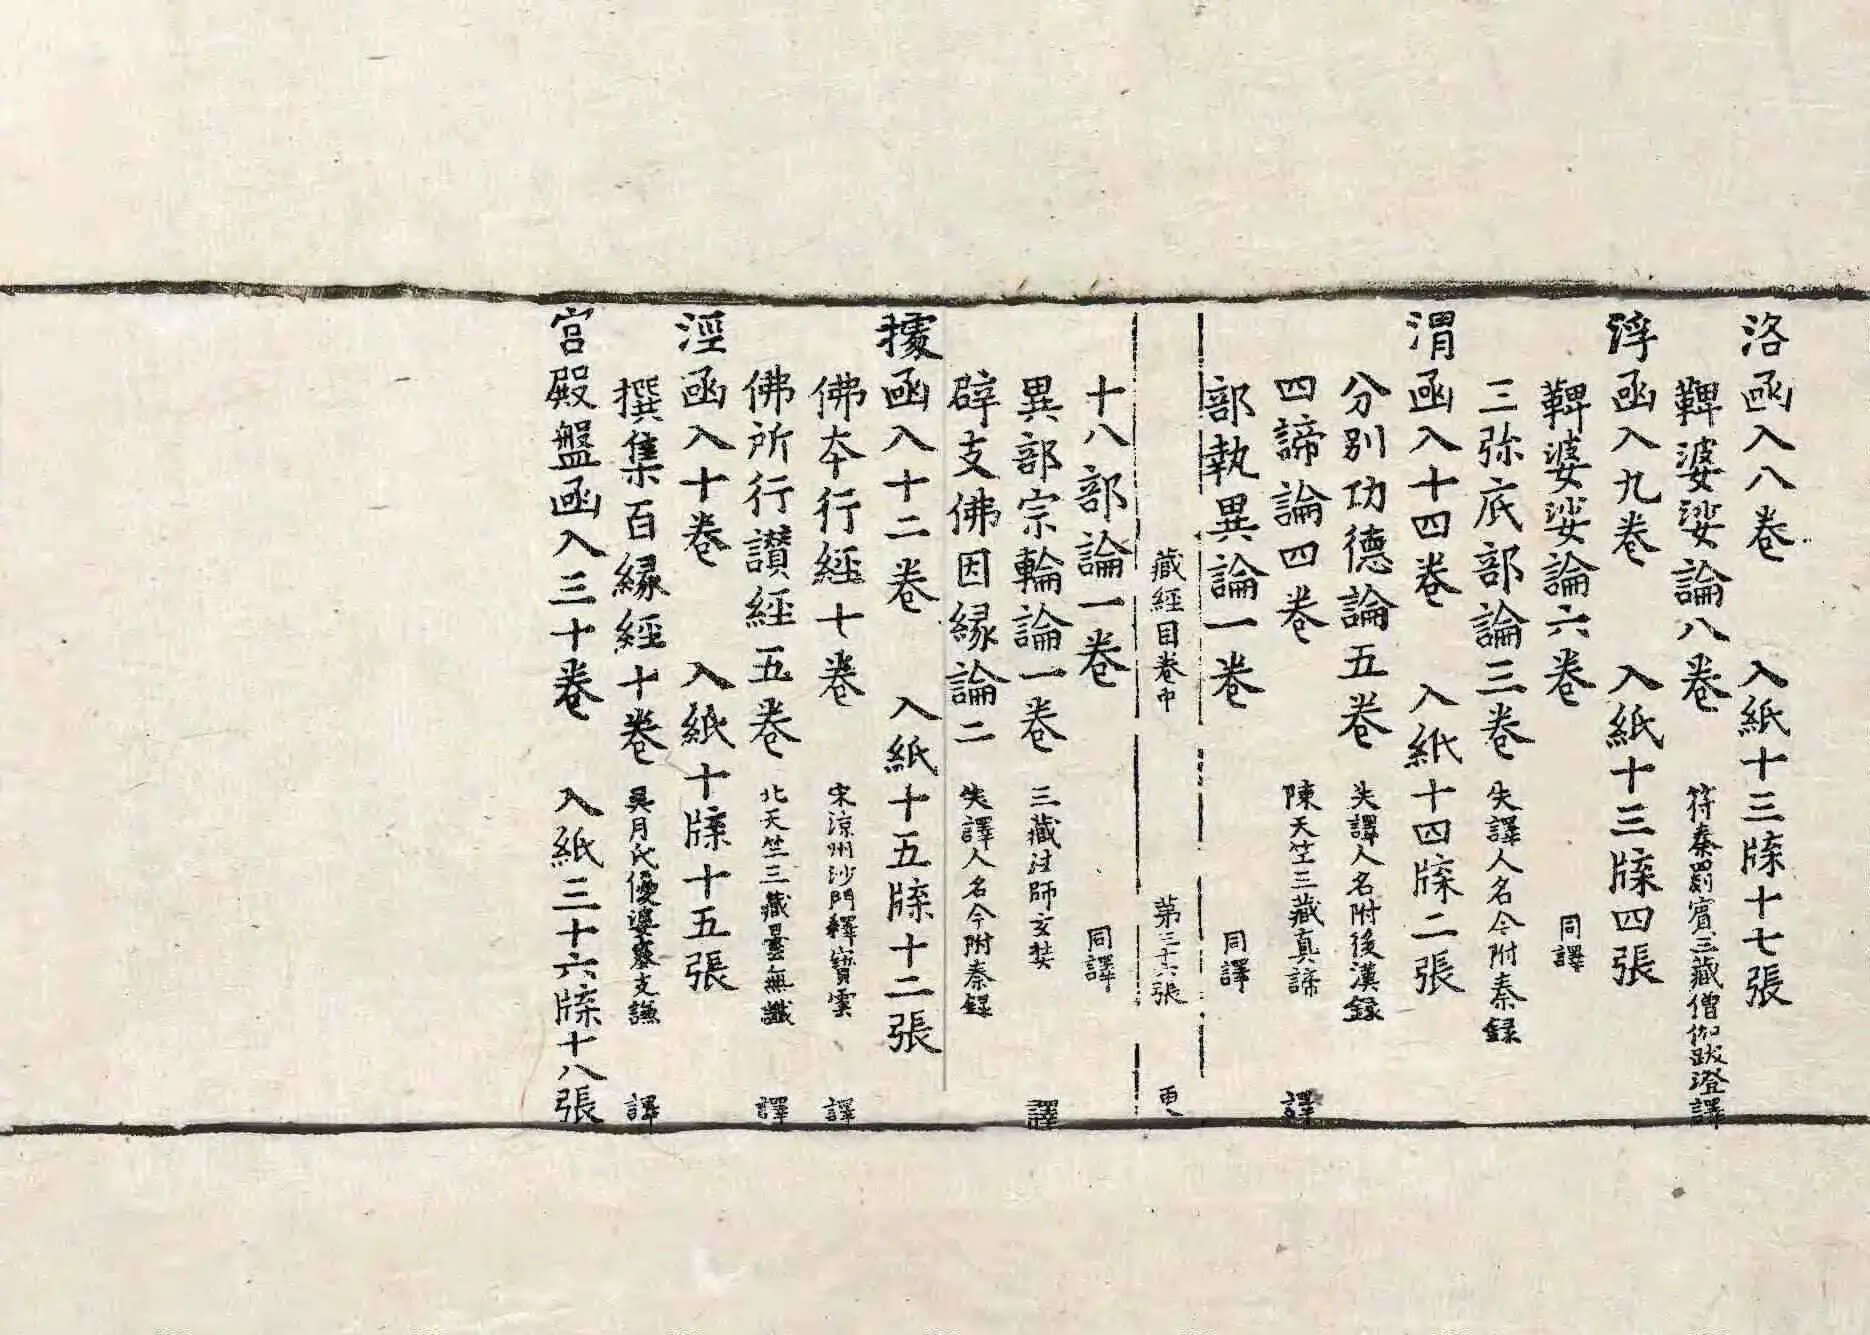 洛函入八卷 入紙十三牒十七張
鞞婆娑論八卷 符秦罽賓三藏僧伽跋澄譯
浮函入九卷 入紙十三牒四張
鞞婆娑論六卷 同譯
三弥底部論三卷 失譯人名今附秦録
渭函入十四卷 入紙十四牒二張
分别功德論五卷 失譯人名附後漢録
四諦論四卷 陳天竺三藏真諦 譯
部執異論一卷 同譯
藏經目卷中 第三十六張 更
十八部論一卷 同譯
異部宗輪論一卷 三藏法師玄奘 譯
辟支佛因縁論二 失譯人名今附秦録
據函入十二卷 入紙十五牒十二張
佛夲行經七卷 宋涼州沙門釋寶雲 譯
佛所行讃經五卷 北天竺三藏曇無讖 譯
涇函入十卷 入紙十牒十五張
撰集百縁經十卷 吳月氏優婆塞支謙 譯
宫殿盤函入三十卷 入紙三十六牒十八張